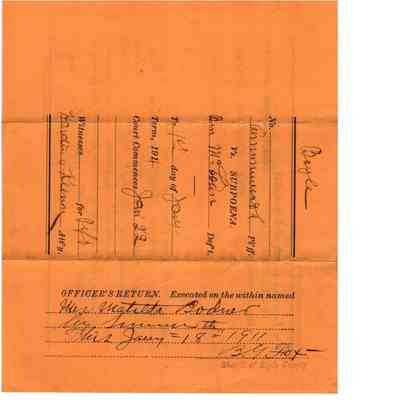 Boyle
No.
Commonwealth Pl'ff.
Vs. SUBPOENA.
Ben McGoar Def't.
To 1st day of Jany
Term, 191
Court Commences Jan 23
Witnesses for
Hardin & Kenner Att'y.
OFFICER'S RETURN. Executed on the within named
Mrs Matilda Bodner
by summons the
this Jany - 18 - 1911
B G Fox
Sheriff of Boyle County